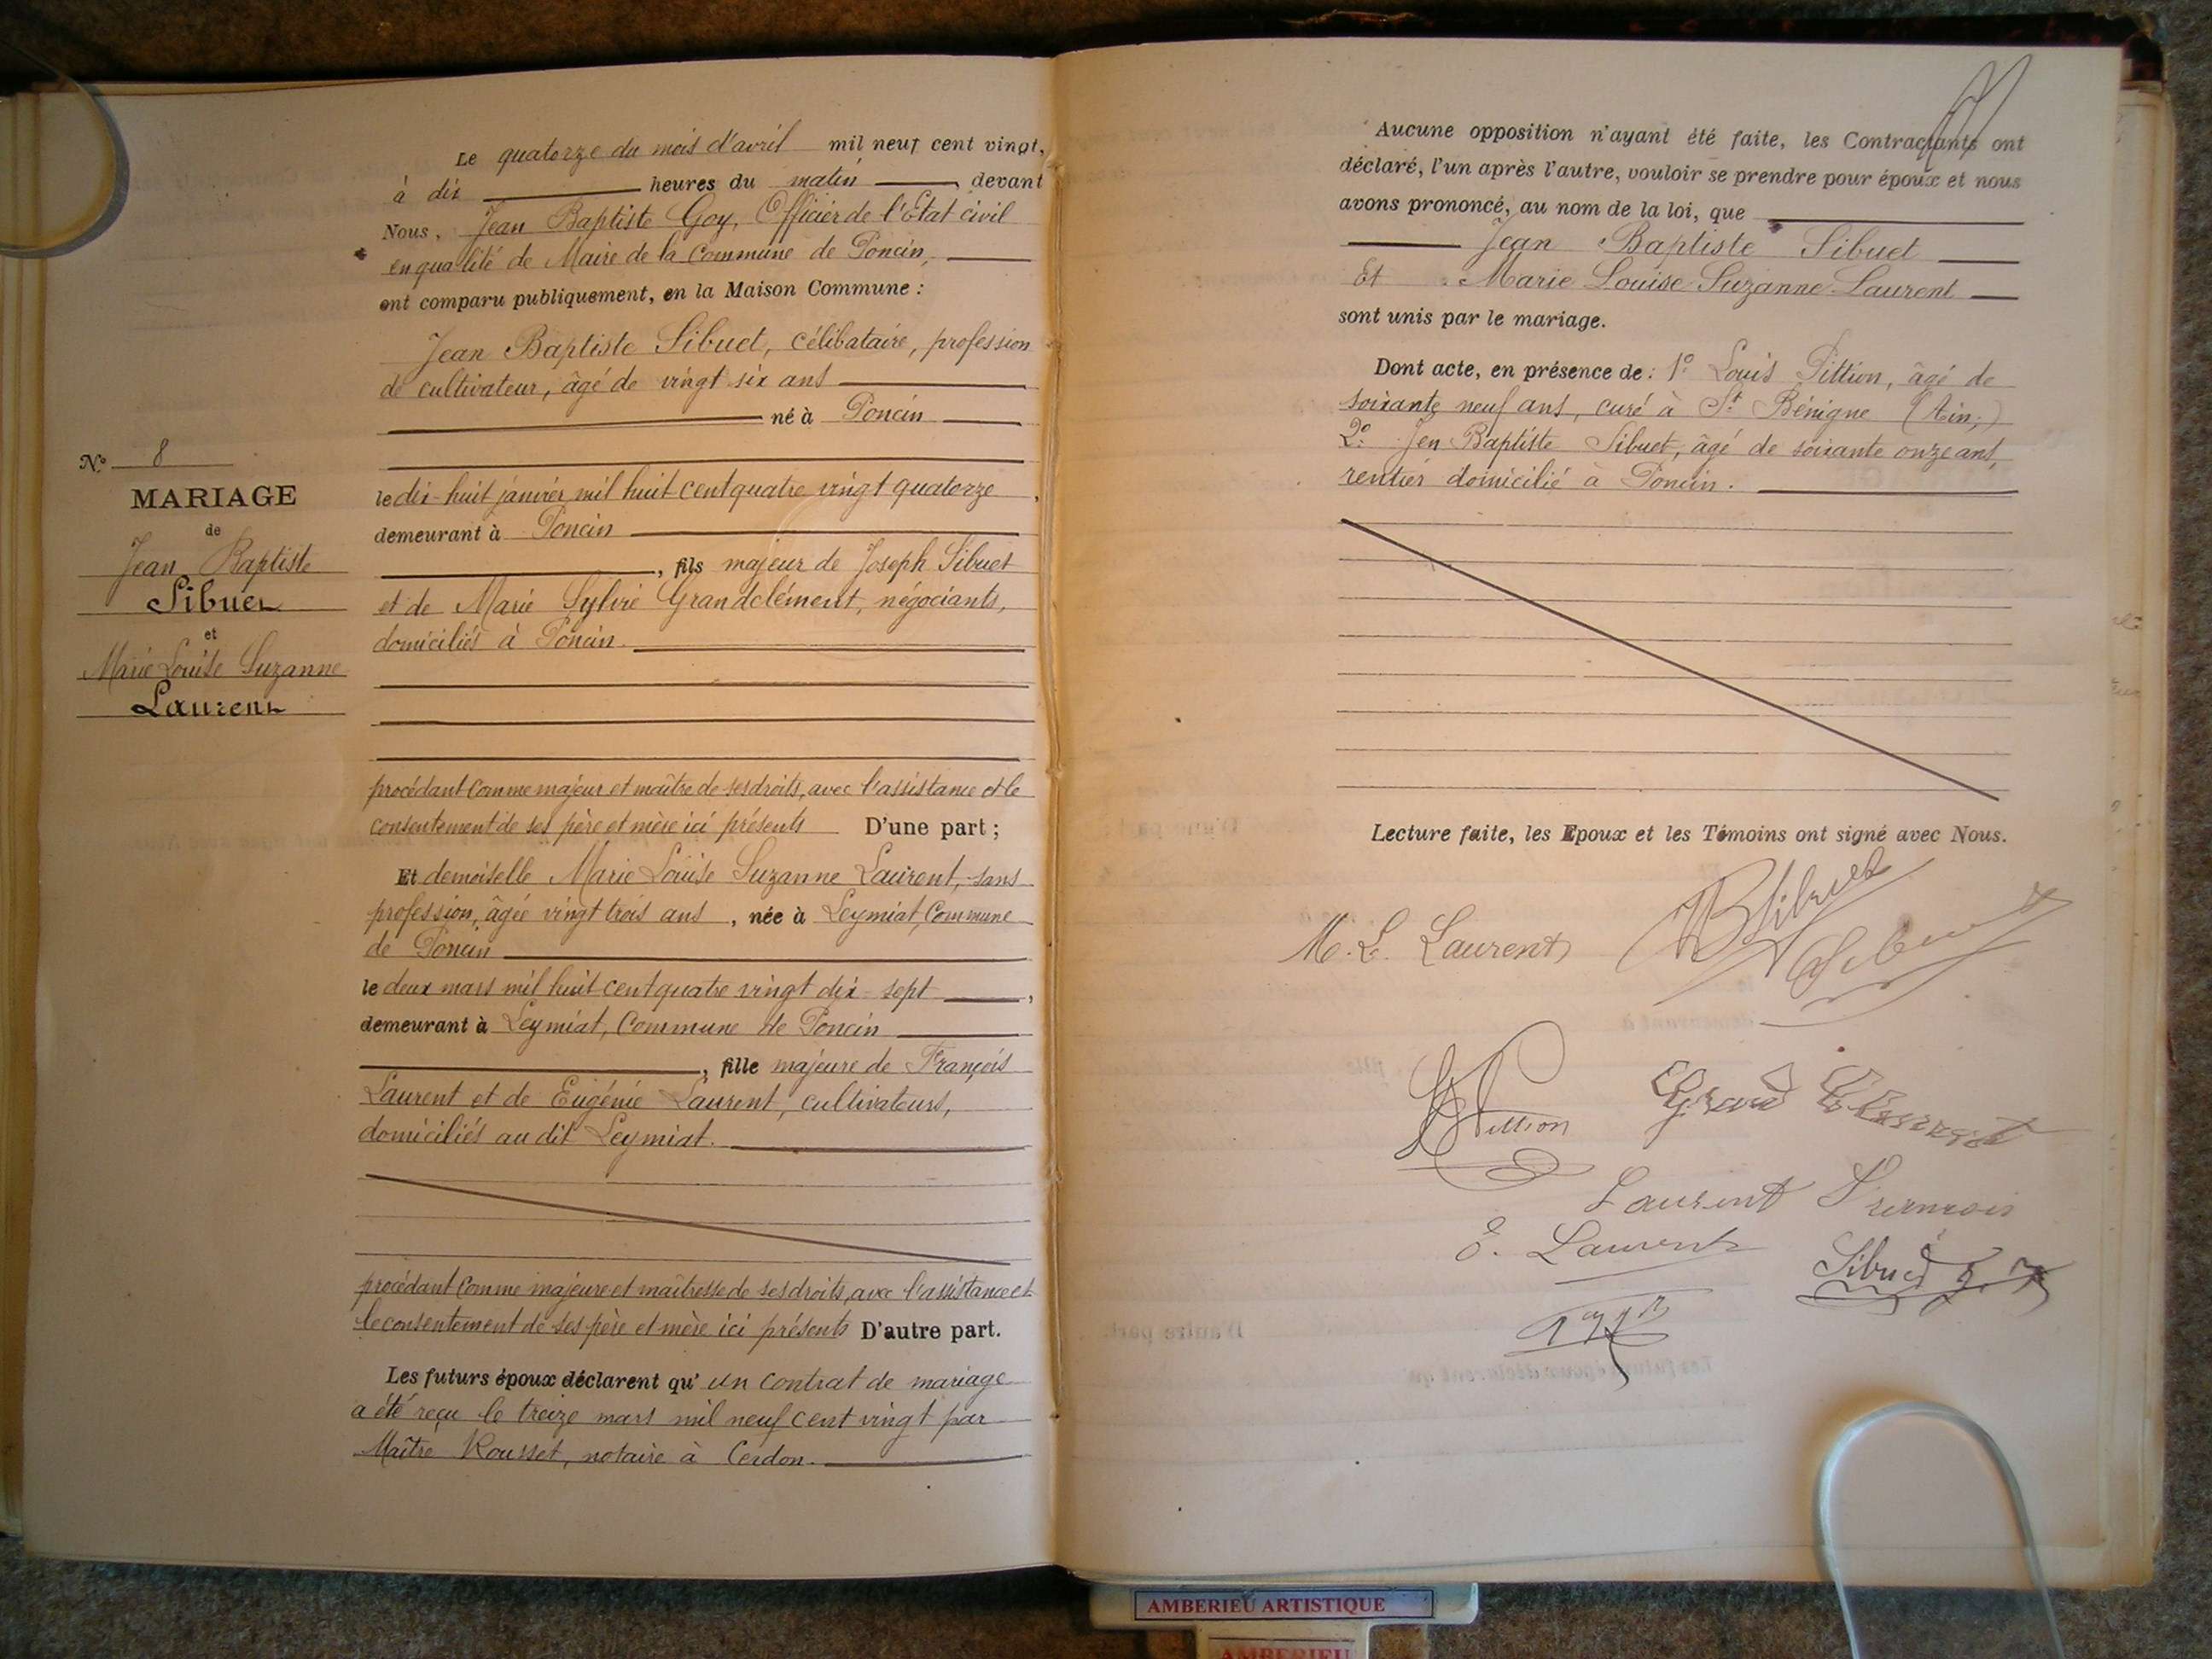 N° 8
MARIAGE
de
Jean Baptiste
Sibuet
et
Marie Louise Suzanne
Laurent
Le quatorze du mois d'avril mil neuf cent vingt,
à dix heures du matin, devant
Nous, Jean Baptiste Goy, Officier de l'Etat civil
en qualité de Maire de la Commune de Poncin,
ont comparu publiquement, en la Maison Commune :
Jean Baptiste Sibuet, célibataire, profession
de cultivateur, âgé de vingt six ans
né à Poncin
le dix-huit janvier mil huit cent quatre vingt quatorze,
demeurant à Poncin
, fils majeur de Joseph Sibuet
et de Marie Sylvie Grandclément, négociants,
domiciliés à Poncin.
procédant comme majeur et maître de ses droits, avec l'assistance et le
consentement de ses père et mère ici présents D'une part ;
Et demoiselle Marie Louise Suzanne Laurent, sans
profession, âgée vingt trois ans, née à Leymiat, Commune
de Poncin
le deux mars mil huit cent quatre vingt dix-sept,
demeurant à Leymiat, Commune de Poncin
, fille majeure de François
Laurent et de Eugénie Laurent, cultivateurs,
domiciliés au dit Leymiat.
procédant comme majeure et maîtresse de ses droits, avec l'assistance et
le consentement de ses père et mère ici présents D'autre part.
Les futurs époux déclarent qu'un contrat de mariage
a été reçu le treize mars mil neuf cent vingt par
Maître Rousset, notaire à Cerdon.
Aucune opposition n'ayant été faite, les Contractants ont
déclaré, l'un après l'autre, vouloir se prendre pour époux et nous
avons prononcé, au nom de la loi, que
Jean Baptiste Sibuet
Et Marie Louise Suzanne Laurent
sont unis par le mariage.
Dont acte, en présence de : 1° Louis Pittion, âgé de
soixante neuf ans, curé à St Bénigne (Ain,)
2° Jen Baptiste Sibuet, âgé de soixante onze ans,
rentier domicilié à Poncin.
Lecture faite, les Epoux et les Témoins ont signé avec Nous.
M. L. Laurent
JB Sibuet
Sibuet
Pittion
Grand Clement
Laurent Francois
E. Laurent
Sibuet J. B
AMBERIEU ARTISTIQUE
AMBERIEU